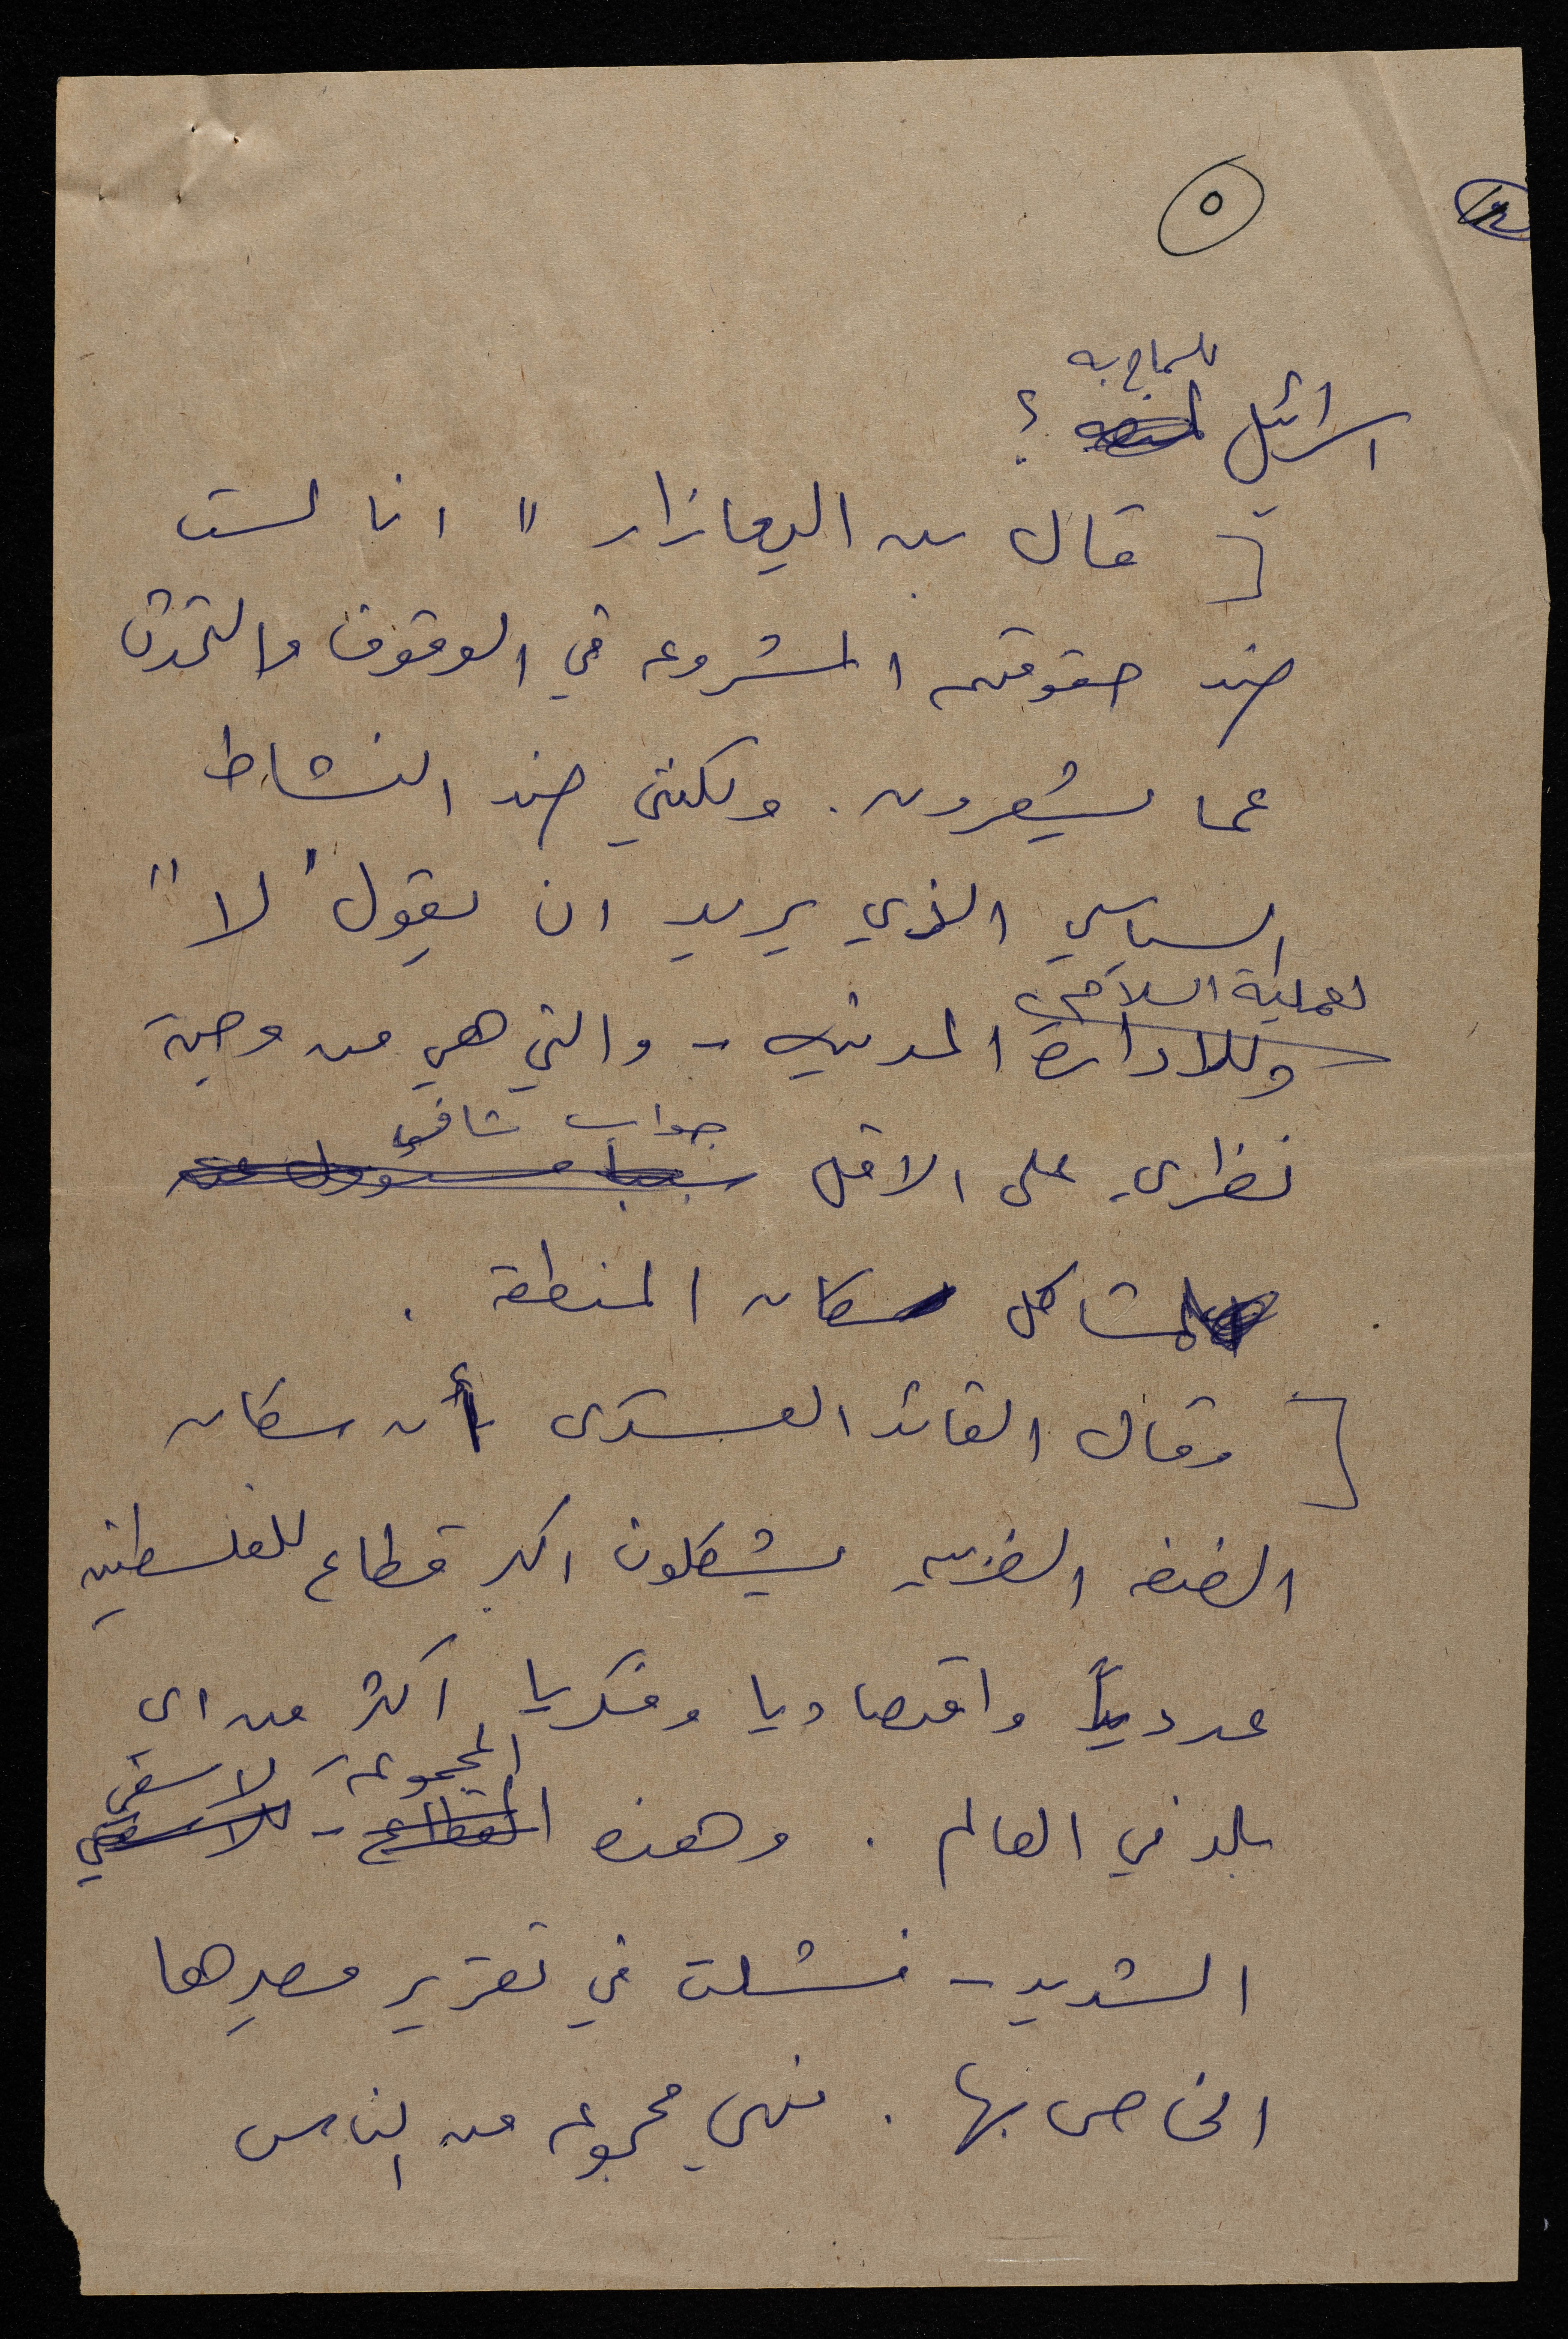 ٥
١٢
للسماح به
اسرائيل ؟
قال بن اليعازار " انا لست
ضد حقوقهم المشروعه في الوقوف والتحدث
عما يشعرون . ولكنني ضد النشاط
السياسي الذي يريد ان يقول "لا"
لعملية السلام
وللادارة المدنيه - والتي هي من وجهة
جواب شافي
نظري على الاقل
لمشاكل سكان المنطقة .
وقال القائد العسكري أن سكان
الضفه الغربيه يشكلون اكبر قطاع للفلسطينين
عددياً واقتصاديا وفكريا اكثر من اي
المجموعة لاسفي
بلد في العالم . وهذه القطاع - للاسفي
الشديد - فشلت في تقرير مصيرها
الخاص بها . فهي مجموعه من الناس